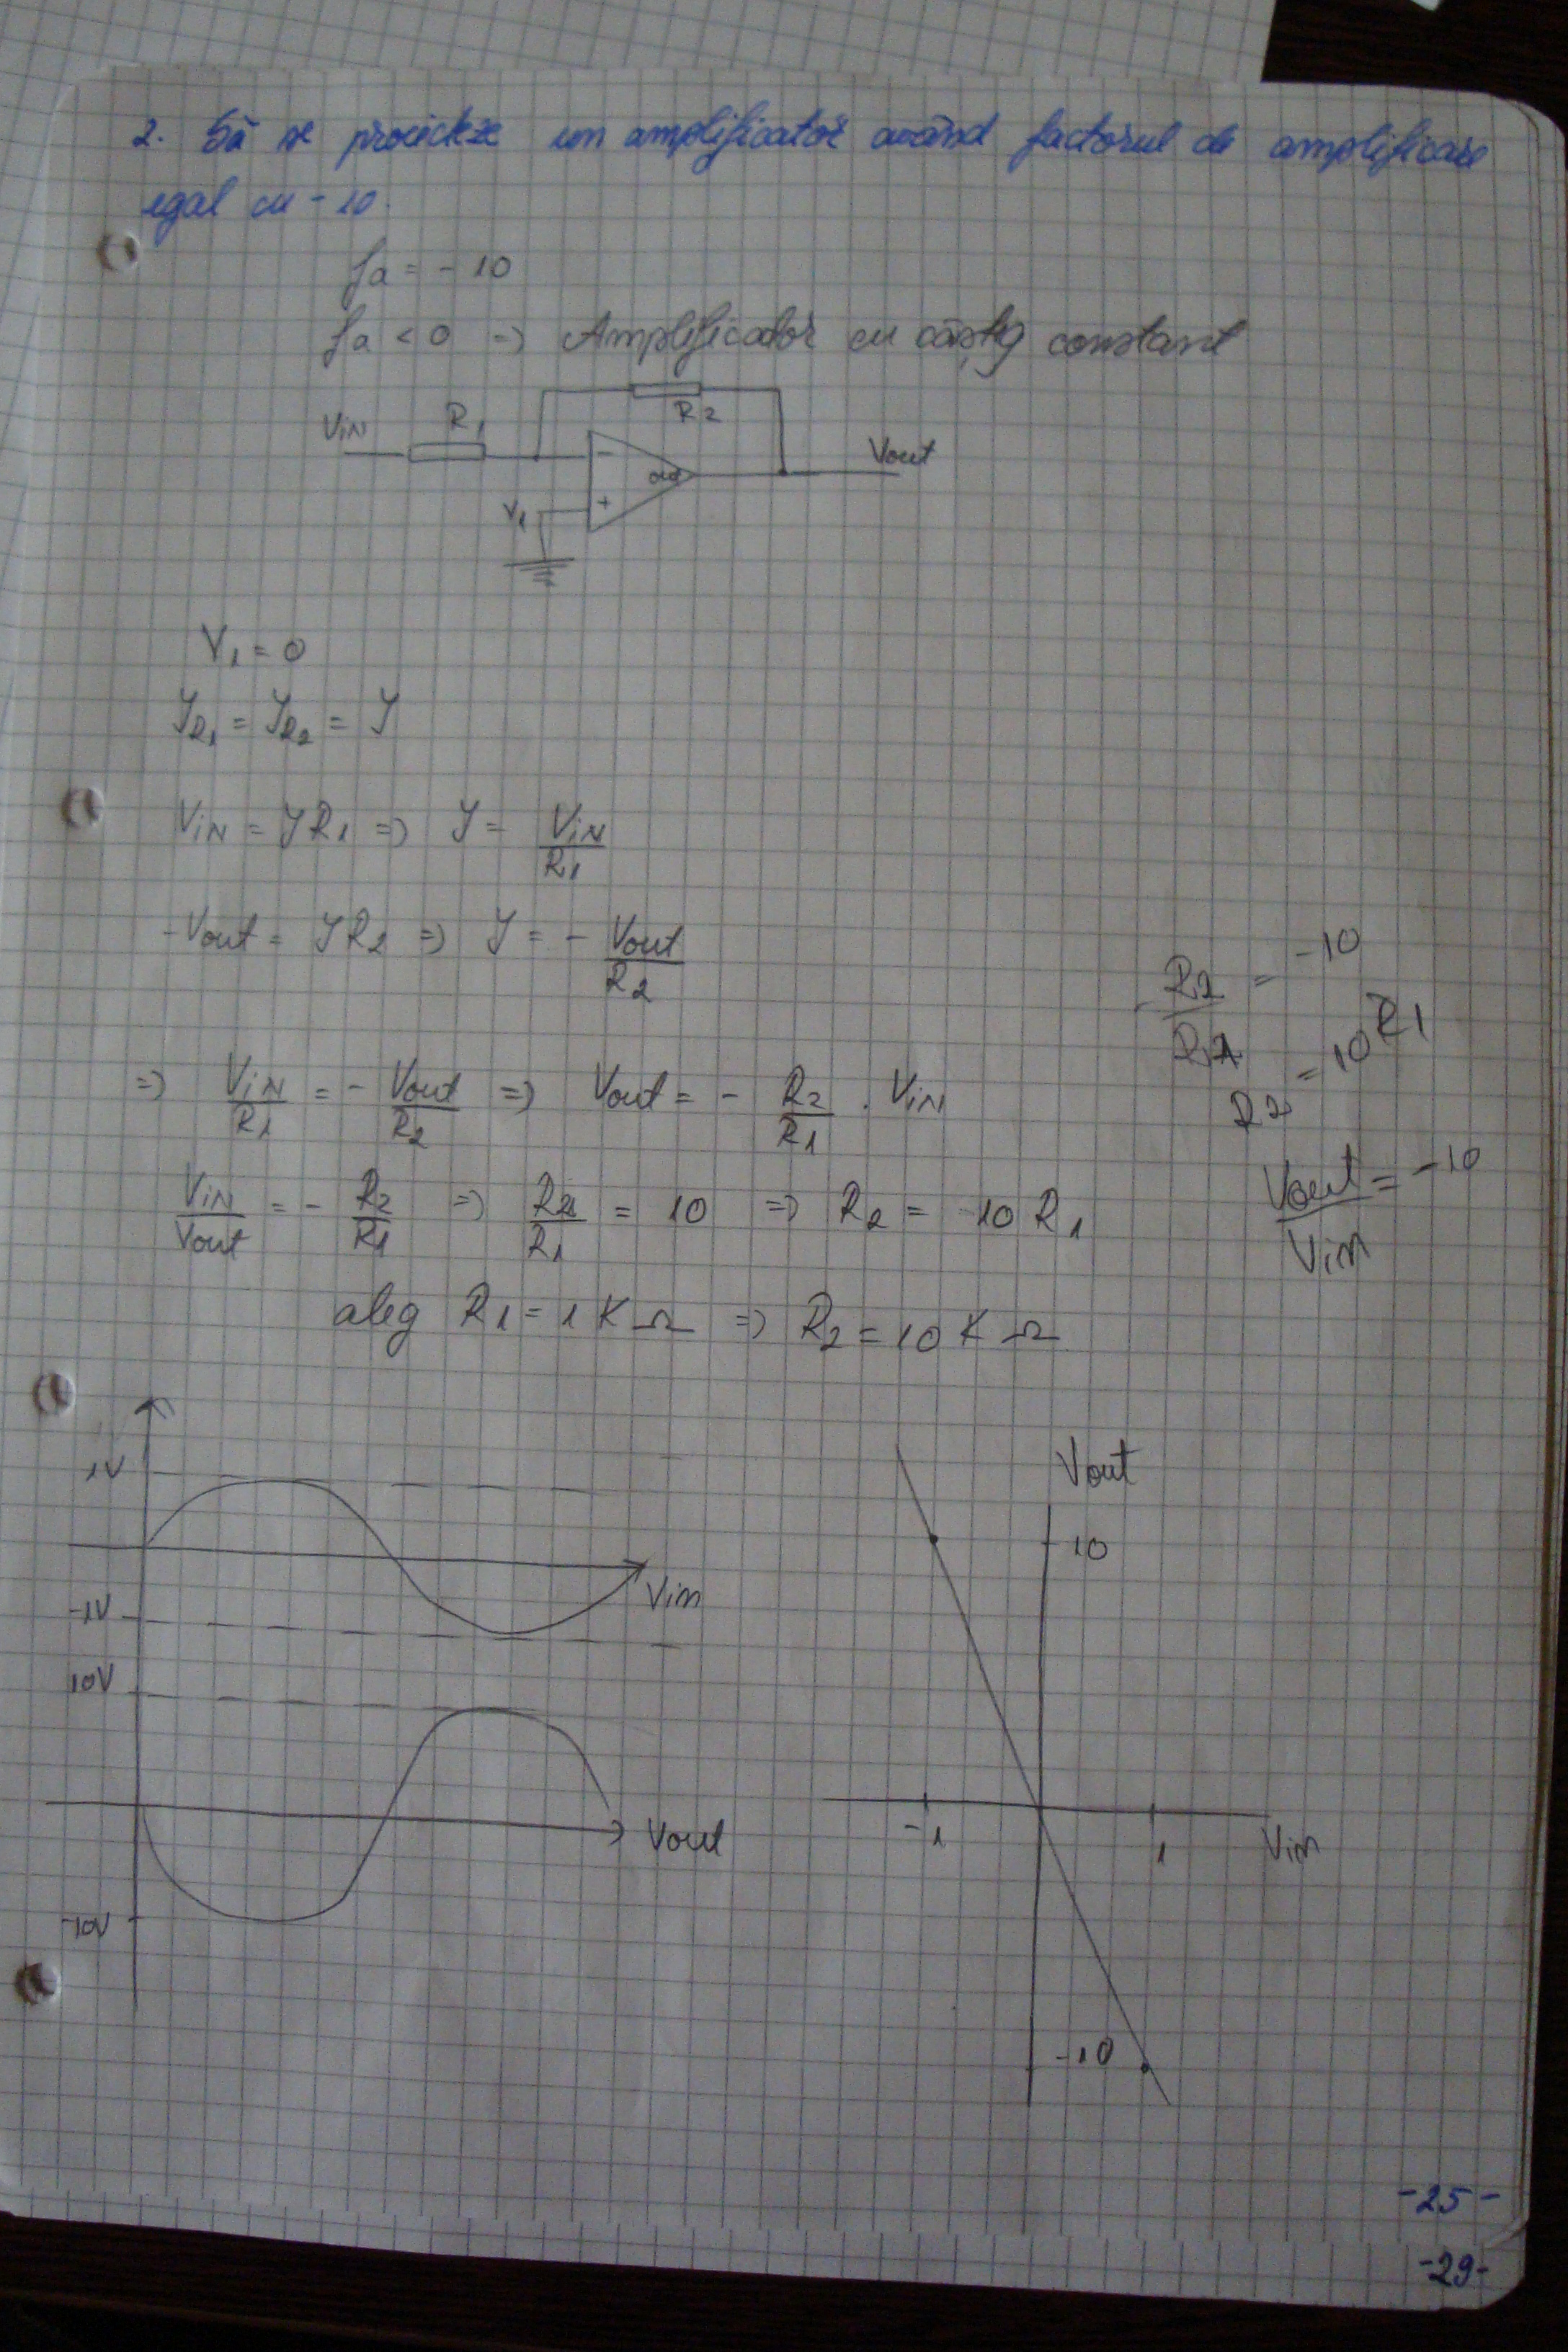 2. Să se proiecteze un amplificator având factorul de amplificare
egal cu -10.
fa = -10
fa < 0 => Amplificator cu câștig constant
R2
Vin R1
Vout
-
+
V1
V1 = 0
IR1 = IR2 = I
Vin = I R1 => I = Vin/R1
-Vout = I R2 => I = - Vout/R2
=> Vin/R1 = - Vout/R2 => Vout = - R2/R1 . Vin
Vin/Vout = - R2/R1 => R2/R1 = 10 => R2 = 10 R1
aleg R1 = 1 KΩ => R2 = 10 KΩ
- R2/R1 = -10
R2 = 10 R1
Vout/Vin = -10
1V
Vin
-1V
10V
Vout
-10V
Vout
10
-1
1
Vin
-10
-25-
-29-